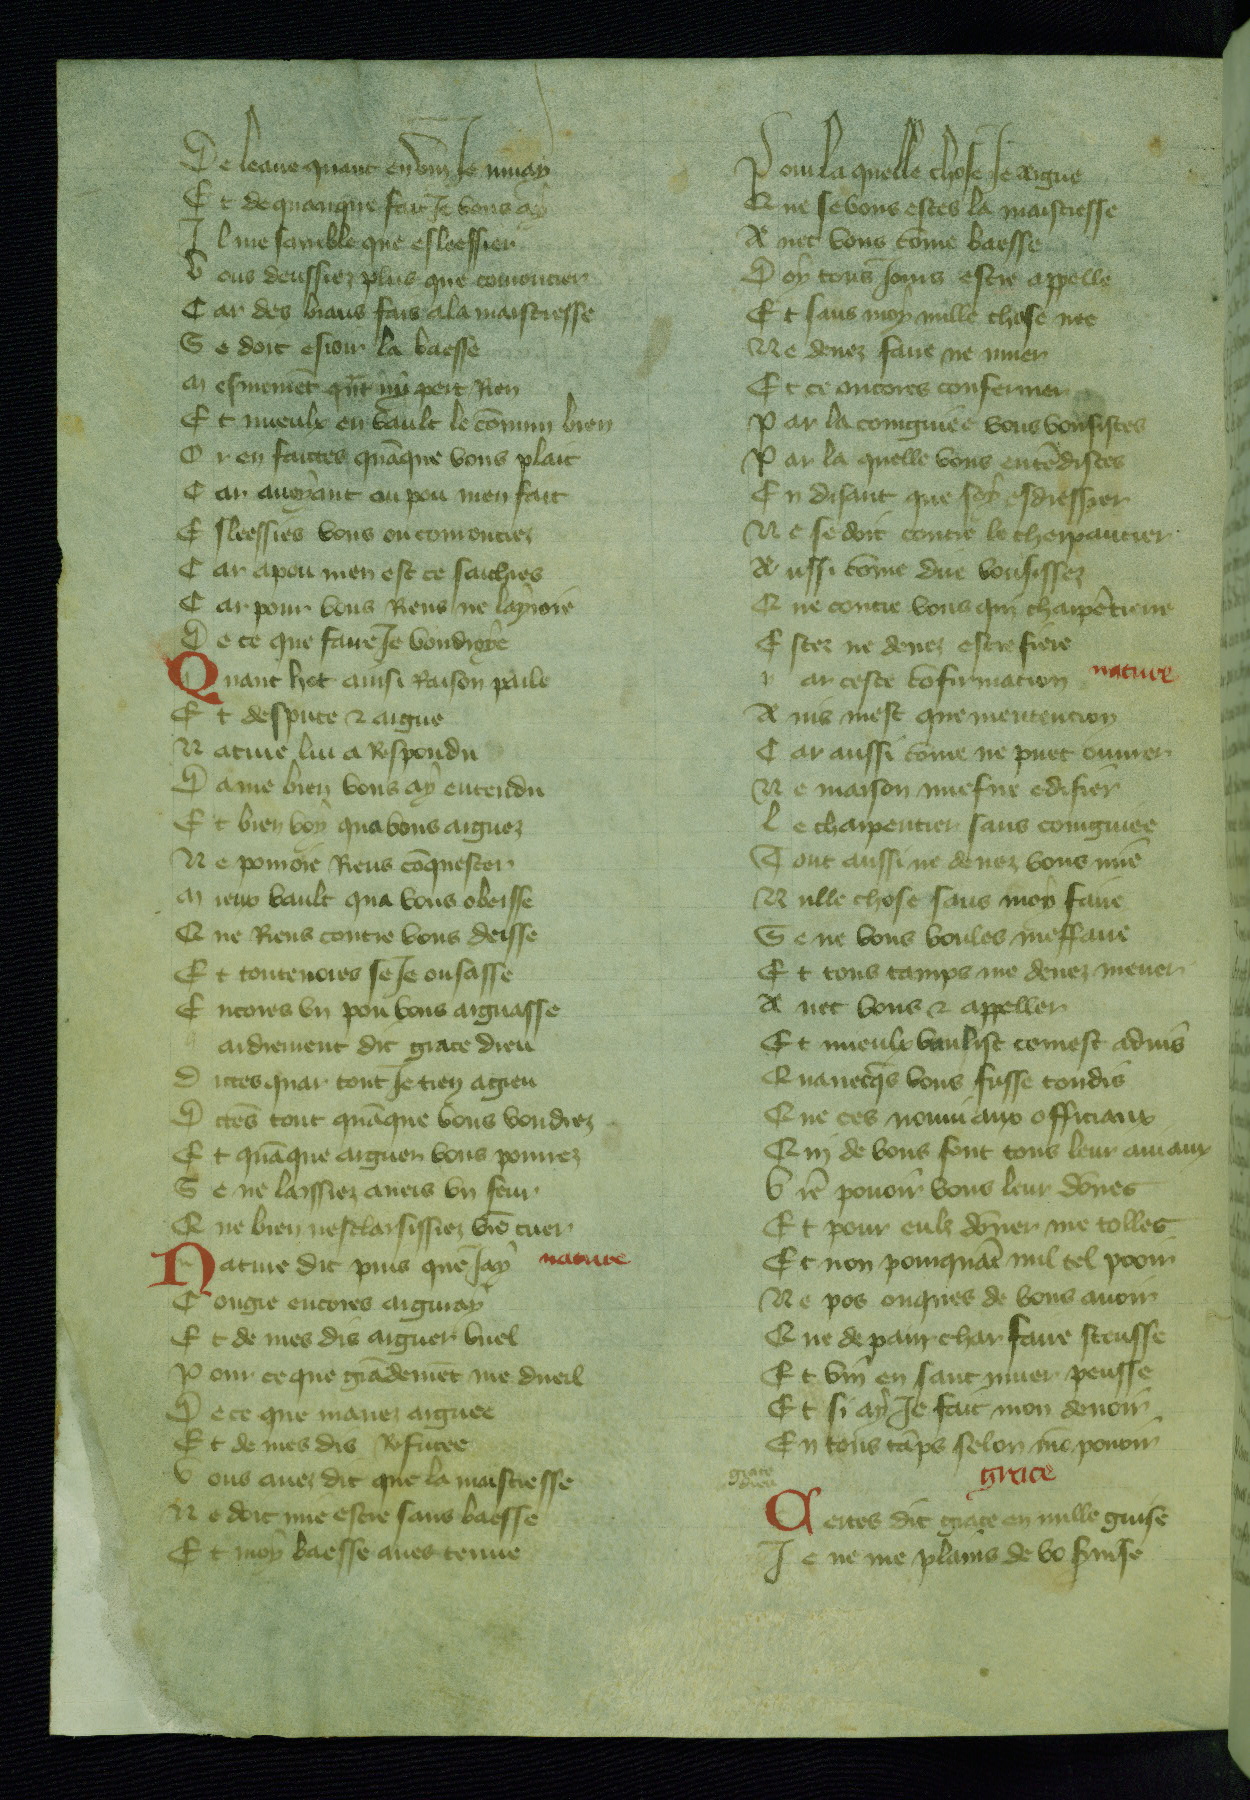 De leaue quant en vin Je muay
Et de quanque fait Je vous ay
Il me samble que esleessier
Vous deussiez plus que comoucier
Car des biaus fais a la maistresse
Se doit esioir la baesse
Mesmemēt qñt nū pert Rien
Et mieulx en vault le cōmun bien
Or en faittes quāque vous plait
Car auenant ou pou men fait
Esleessies vous ou comouciez
Car a pou men est ce saichies
Car pour vous Riens ne layroie
De ce que faire Je vondroye
Quant het ainsi Raison parle
Et despute & argue
Nature lui a Respondu
Dame bien vous ay entendu
Et bien voy qua vous arguez
Ne pourroie Riens cōquester
Mieux vault qua vous obeisse
Que Riens contre vous deisse
Et toutenoies se Je ousasse
Encores vn pou vous arguasse
hardiement dit grace dieu
Dittes quar tout Je tien a gieu
Dctes tout quāque vous voudrez
Et quāque arguer vous pourrez
Se ne laissiez aueis vn feur
Que bien nesclarsissiez vrē cuer
Nature dit puis que Jay nature
Congie encores arguray
Et de mes dis arguer vuel
Pour ce que grādemēt me dueil
De ce que mauez arguee
Et de mes dis Refusee
Vous auez dit que la maistresse
Ne doit mie estre sans baesse
Et moy baesse aues tenue
Pour la quelle chose Je argue
Que se vous estes la maistresse
Auec vous cōme baesse
Doy tous Jours estre appelle
Et sans moy nulle chose nee
Ne deuez faire ne muer
Et ce oncores confermer
Par la congniee vous vousistes
Par la quelle vous entēdistes
En disant que soy esdressier
Ne se doit contre le cherpantier
Aussi cōme due vousissez
Que contre vous qui charpētiere
Estez ne deuez estre fiere
par ceste cōfirmacion nature
Auis mest que mentencion
Car aussi cōme ne puet ouurer
Ne maison nuefue edifier
Le charpentier sans congniee
Tout aussi ne deuez vous mie
Nulle chose sans moy faire
Se ne vous voules meffaire
Et tous tamps me deuez mener
Auec vous & appeller
Et mieulx vaulist ce mest aduis
Quauecq̃s vous fusse toudis
Que ces nouuiaux officiaux
Qui de vous font tous leur auiaux
Vrē pouoir vous leur dōnes
Et pour eulx dōner me tolles
Et non pourquāt nul tel pooir
Ne pos onques de vous auoir
Que de pain char faire sceusse
Et vin en sanc muer peusse
Et si ay Je fait mon deuoir
En tous tāps selon mō pouoir
grace dieu
grace
Certes dit grace en nulle guise
Je ne me plains de vo seruise